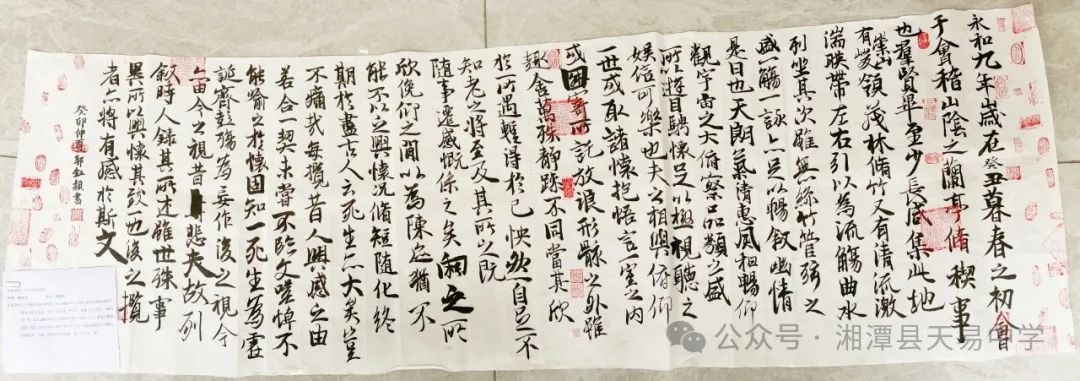 永和九年歲在癸丑暮春之初會
于會稽山陰之蘭亭脩稧事
也羣賢畢至少長咸集此地
有崇山峻領茂林脩竹又有清流激
湍暎帶左右引以為流觴曲水
列坐其次雖無絲竹管弦之
盛一觴一詠亦足以暢叙幽情
是日也天朗氣清惠風和暢仰
觀宇宙之大俯察品類之盛
所以遊目騁懷足以極視聽之
娛信可樂也夫人之相與俯仰
一世或取諸懷抱悟言一室之內
或因寄所託放浪形骸之外雖
趣舍萬殊靜躁不同當其欣
於所遇蹔得於己怏然自足不
知老之將至及其所之既
隨事遷感慨係之矣向之所
欣俛仰之閒以為陳迹猶不
能不以之興懷況脩短隨化終
期於盡古人云死生亦大矣豈
不痛哉每攬昔人興感之由
若合一契未嘗不臨文嗟悼不
能喻之於懷固知一死生為虛
誕齊彭殤為妄作後之視今
亦由今之視昔悲夫故列
敘時人錄其所述雖世殊事
異所以興懷其致一也後之攬
者亦將有感於斯文
癸卯仲夏
書
公众号·湘潭县天易中学